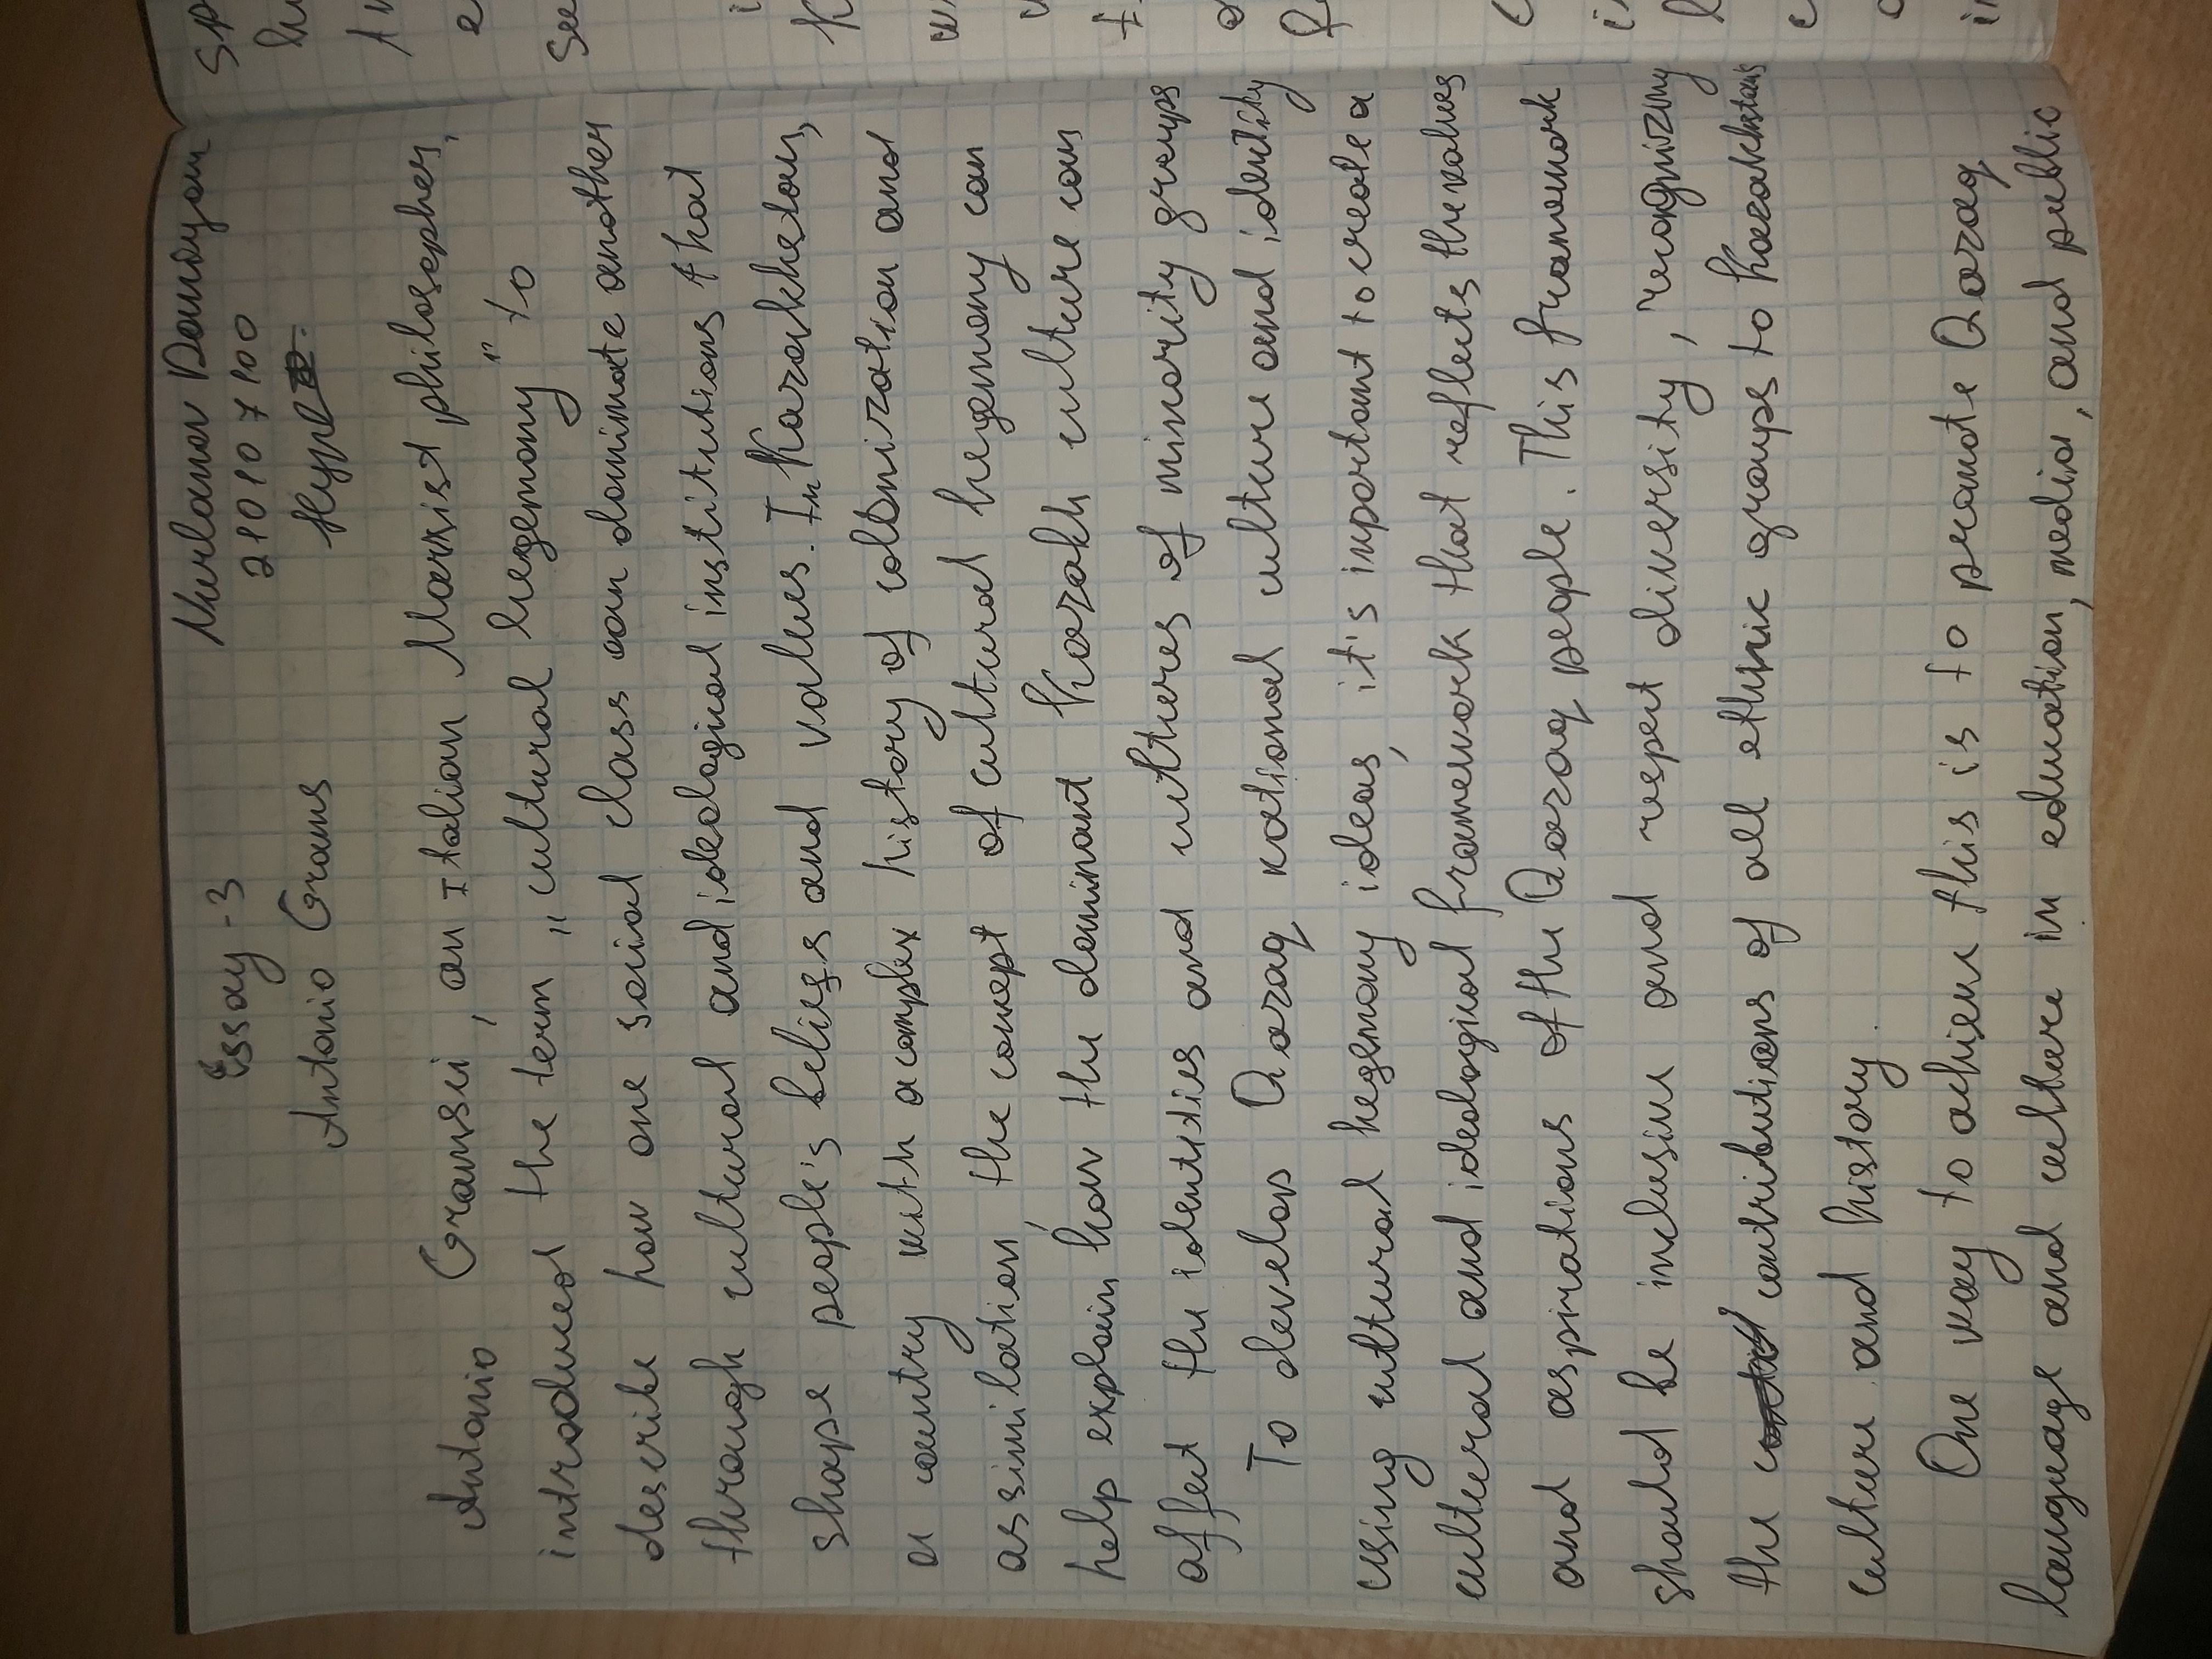 Essay - 3
Nurlanov
210107100
Antonio Grams
Antonio Gramsci, an Italian Marxist philosopher,
introduced the term „cultural hegemony" to
describe how one social class can dominate another
through cultural and ideological institutions that
shape people's beliefs and values. In Kazakhstan,
a country with a complex history of colonization and
assimilation, the concept of cultural hegemony can
help explain how the dominant Kazakh culture can
affect the identities and cultures of minority groups
To develop Qazaq national culture and identity
using cultural hegemony ideas, it's important to create a
cultural and ideological framework that reflects the values
and aspirations of the Qazaq people. This framework
should be inclusive and respect diversity, recognizing
the contributions of all ethnic groups to Kazakhstan's
culture and history.
One way to achieve this is to promote Qazaq
language and culture in education, media, and public